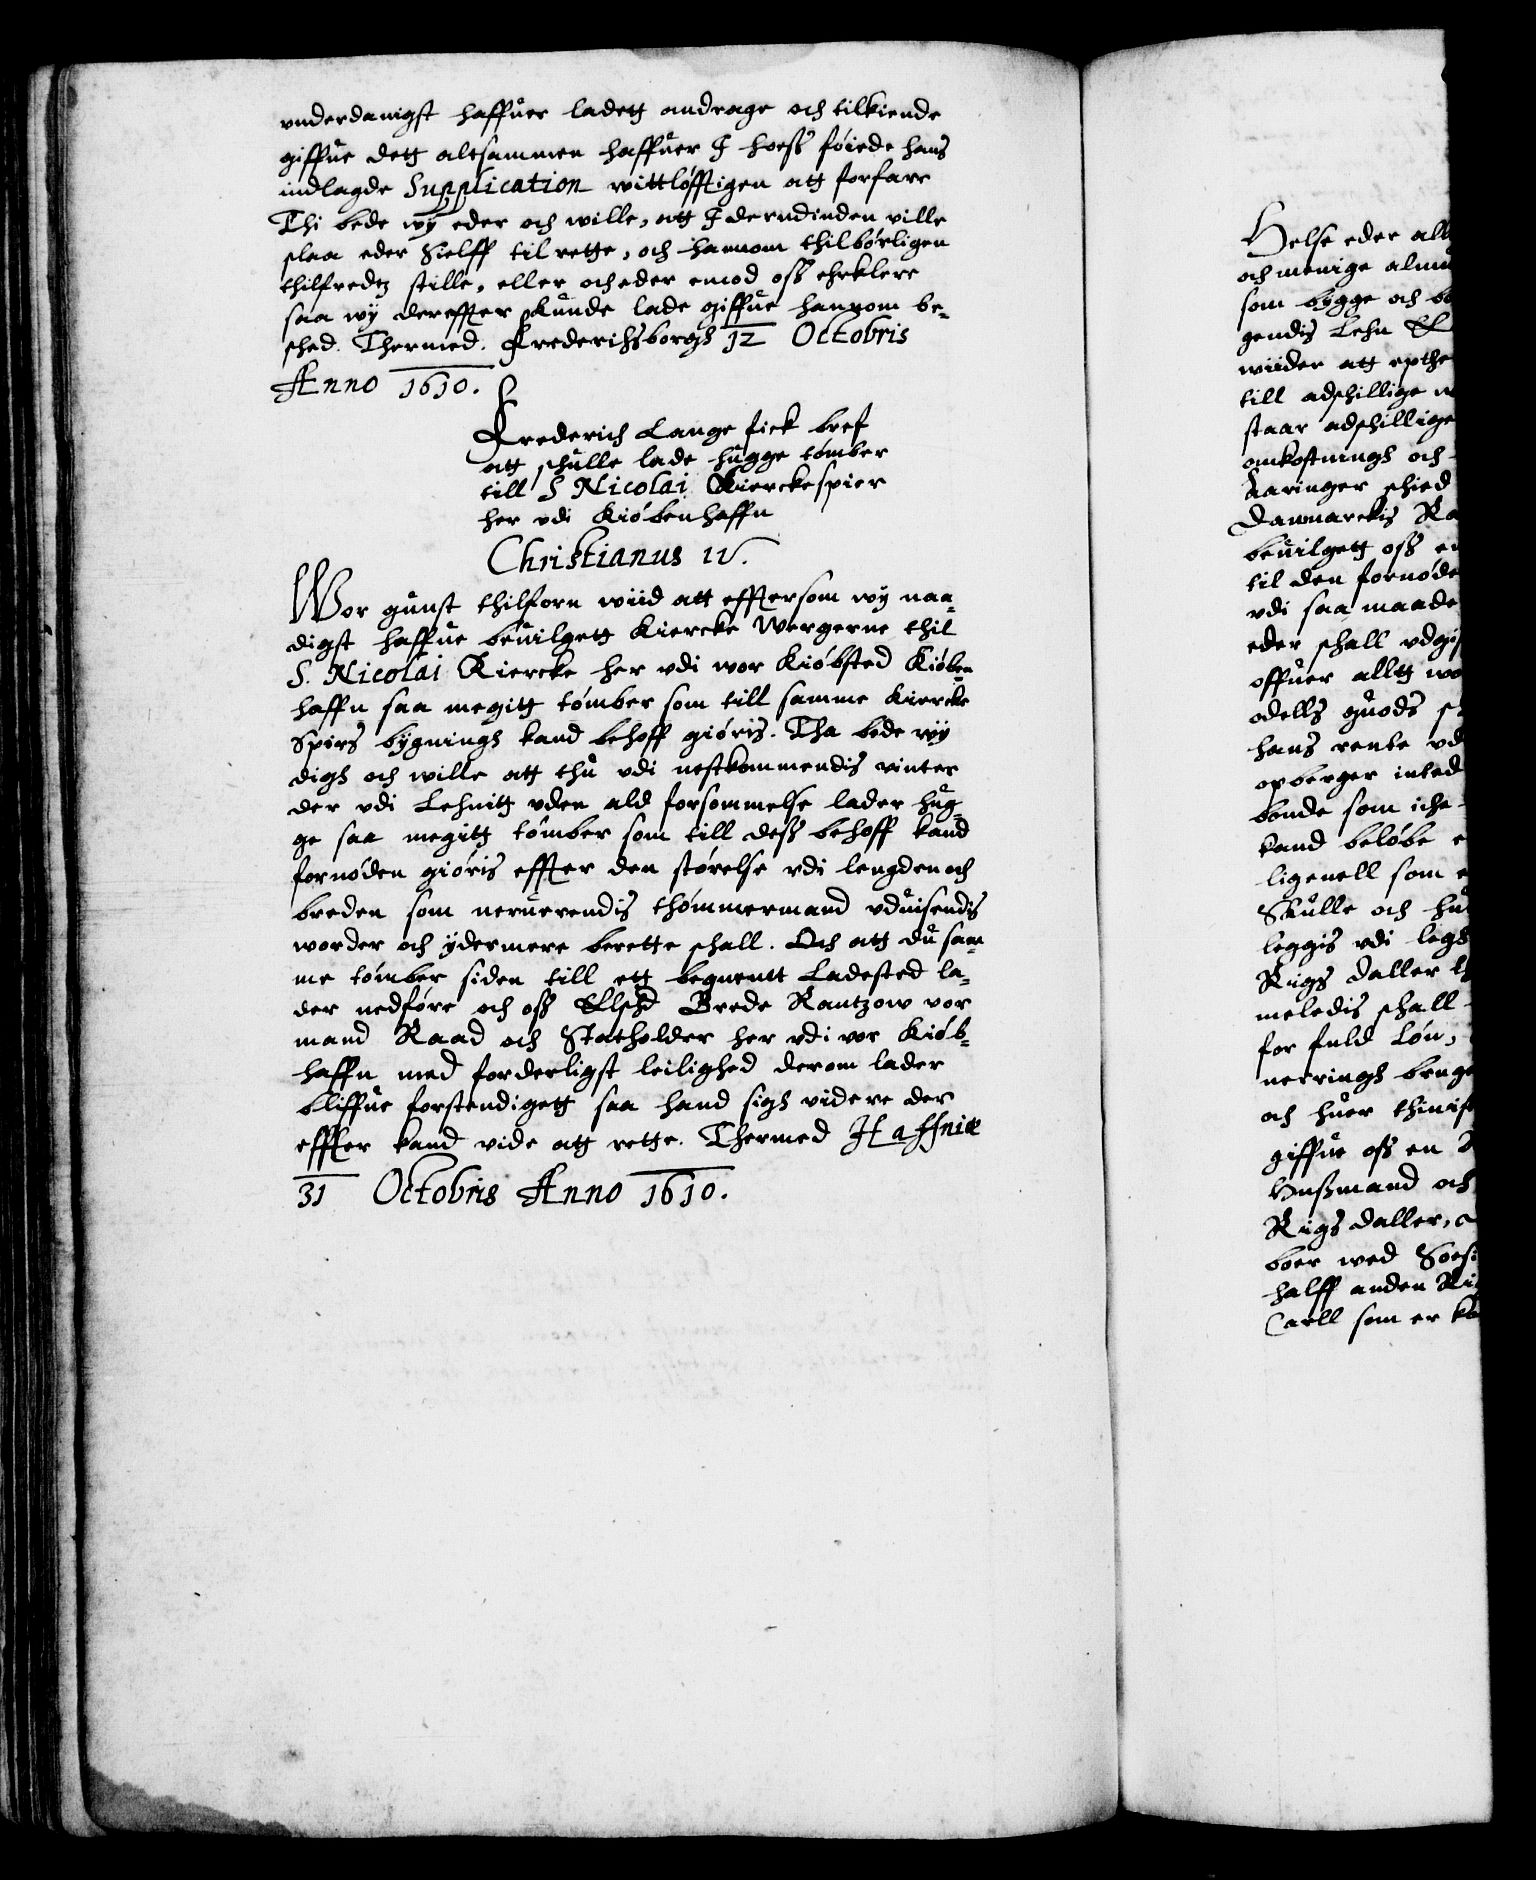 vnderdanigst haffuer ladett andrage och tilkiende
giffue dett altsammen haffuer I hoess föiede hans
indlagde Supplication wittlöfftigen att forfare
Thi bede wÿ eder och wille, att I derudinden ville
slaa eder Sielff til rette, och hannom thilbörligen
thilfredtz stille, eller och eder emod oss ehrklere
saa wÿ dereffter kunde lade giffue hannom be-
sched. Thermed. Frederichsborgh 12 Octobris
Anno 1610.
Frederich Lange fick bref
att schulle lade hugge tömber
till S Nicolai Kierckespier
her vdi Kiöbenhaffn
Christianus IV.
Wor gunst thilforn wiid att efftersom wÿ naa-
digst haffue beuilgett Kiercke Wergerne thil
S. Nicolai Kiercke her vdi wor Kiöbsted Kiöben-
haffn saa megitt tömber som till samme Kiercke
Spirs bÿgningh kand behoff giöris. Tha bede wÿ
digh och wille att thu vdi nestkommendis vinter
der vdi Lehnitt vden ald forsömmelse lader hug-
ge saa megitt tömber som till dess behoff kand
fornöden giöris effter den störelse vdi lengden och
breden som neruerendis thömmermand vduisendis
worder och ÿdermere berette schall. Och att du sam-
me tömber siden till ett bequemt Ladested la-
der nedföre och oss Elschd Brede Rantzow vor
mand Raad och Statholder her vdi vor Kiöb-
haffn med forderligst leilighed derom lader
bliffue forstendigett saa hand sigh videre der
effter kand vide att rette. Thermed Haffniæ
31 Octobris Anno 1610.
Helse eder all
och menige almu
som bÿgge och bo
gendis Lehn
wiider att epthe
till adschillige
staar adschillige
omkostningh och
Kaaringer schied
Danmarckis Ra
beuilgett oss en
til den fornöde
vdi saa maade
eder schall vdgi
offuer alltt wo
odells guods s
hans rente vd
opberger inted
bonde som iche
kand belöbe e
ligeuell som e
Skulle och hu
leggis vdi legh
Rigs daller
meledis schall
for fuld Lön,
nerringh bruge
och huer thinis
giffue oss en
Hussmand och
Rigs daller,
boer wed Soesi
halff anden Ri
Carll som er